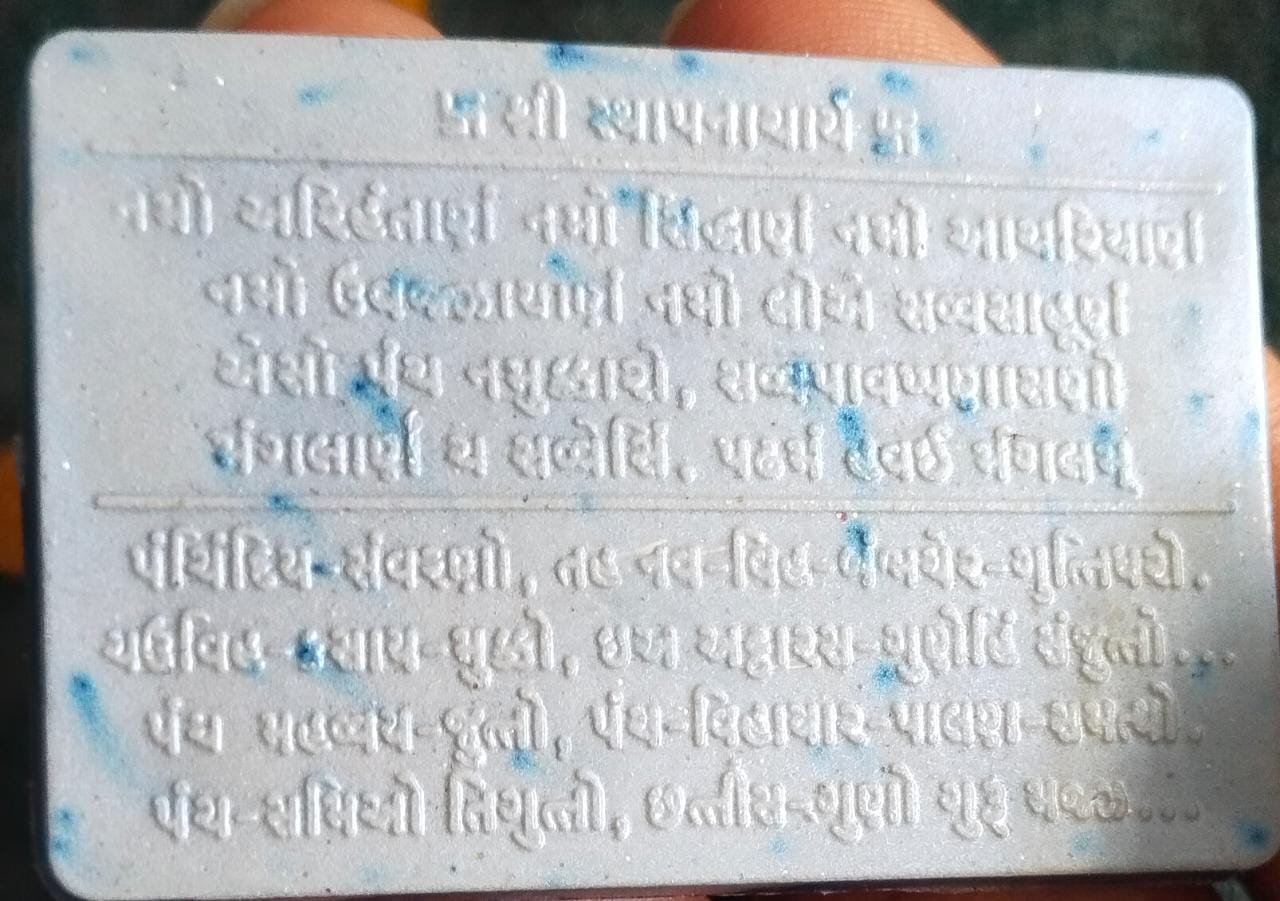 卐 શ્રી સ્થાપનાચાર્ય 卐
નમો અરિહંતાણં નમો સિદ્ધાણં નમો આયરિયાણં
નમો ઉવજ્ઝાયાણં નમો લોએ સવ્વસાહૂણં
એસો પંચ નમુક્કારો, સવ્વપાવપ્પણાસણો
મંગલાણં ચ સવ્વેસિં, પઢમં હવઈ મંગલમ્
પંચિંદિય-સંવરણો, તહ નવ-વિહ-બંભચેર-ગુત્તિધરો.
ચઉવિહ-કસાય-મુક્કો, ઇઅ અટ્ઠારસ-ગુણેહિં સંજુત્તો...
પંચ મહવ્વય-જુત્તો, પંચ-વિહાયાર-પાલણ-સમત્થો.
પંચ-સમિઓ તિગુત્તો, છત્તીસ-ગુણો ગુરૂ મજ્ઝ...